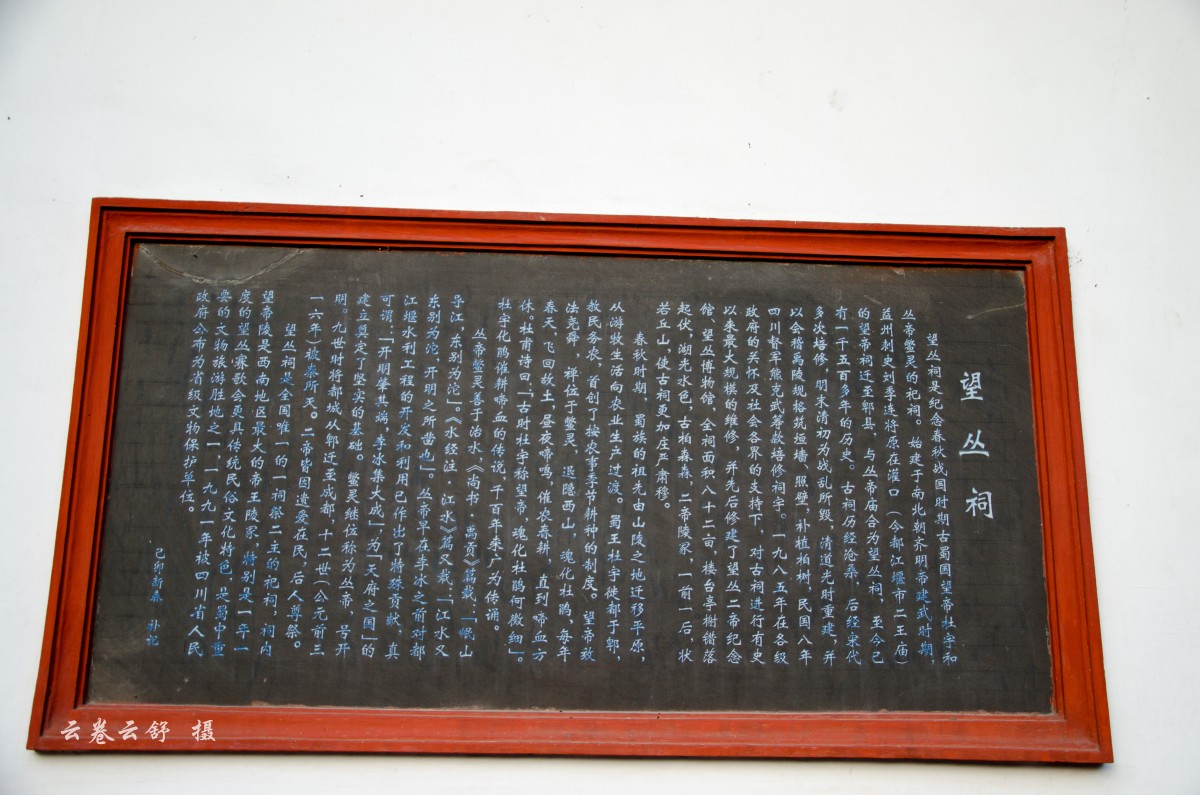 望丛祠
望丛祠是纪念春秋战国时期古蜀国望帝杜宇和
丛帝鳖灵的祀祠。始建于南北朝齐明帝建武时期，
益州刺史刘季连将原在灌口（今都江堰市二王庙）
的望帝祠迁至郫县，与丛帝庙合为望丛祠，至今已
有一千五百多年的历史。古祠历经沧桑，后经宋代
多次培修，明末清初为战乱所毁，清道光时重建，并
以会稽禹陵规格筑垣墙、照壁，补植柏树，民国八年
四川督军熊克武筹款培修祠宇。一九八五年在各级
政府的关怀及社会各界的支持下，对古祠进行有史
以来最大规模的维修，并先后修建了望丛二帝纪念
馆、望丛博物馆，全祠面积八十二亩，楼台亭榭错落
起伏，湖光水色，古柏森森，二帝陵冢，一前一后，状
若丘山，使古祠更加庄严肃穆。
春秋时期，蜀族的祖先由山陵之地迁移平原，
从游牧生活向农业生产过渡。蜀王杜宇徙都于郫，
教民务农，首创了按农事季节耕种的制度。望帝效
法尧舜，禅位于鳖灵，退隐西山，魂化杜鹃，每年
春天，飞回故土，昼夜啼鸣，催农春耕，直到啼血方
休，杜甫诗曰「古时杜宇称望帝，魂化杜鹃何微细」。
杜宇化鹃催耕啼血的传说，千百年来广为传诵。
丛帝鳖灵善于治水，《尚书·禹贡》篇载，「岷山
导江，东别为沱」。《水经注·江水》篇又载：「江水又
东别为沱，开明之所凿也」。丛帝早在李冰之前对都
江堰水利工程的开发和利用已作出了特殊贡献，真
可谓：「开明肇其端，李冰集大成」为「天府之国」的
建立奠定了坚实的基础。鳖灵继位称为丛帝，号开
明。九世时将都城从郫迁至成都，十二世（公元前三
一六年）被秦所灭。二帝皆因遗爱在民，后人尊祭。
望丛祠是全国唯一的一祠祭二主的祀祠，祠内
望帝陵是西南地区最大的帝王陵冢，特别是一年一
度的望丛赛歌会更具传统民俗文化特色，是蜀中重
要的文物旅游胜地之一，一九九一年被四川省人民
政府公布为省级文物保护单位。
己卯新春 补记
云卷云舒 摄